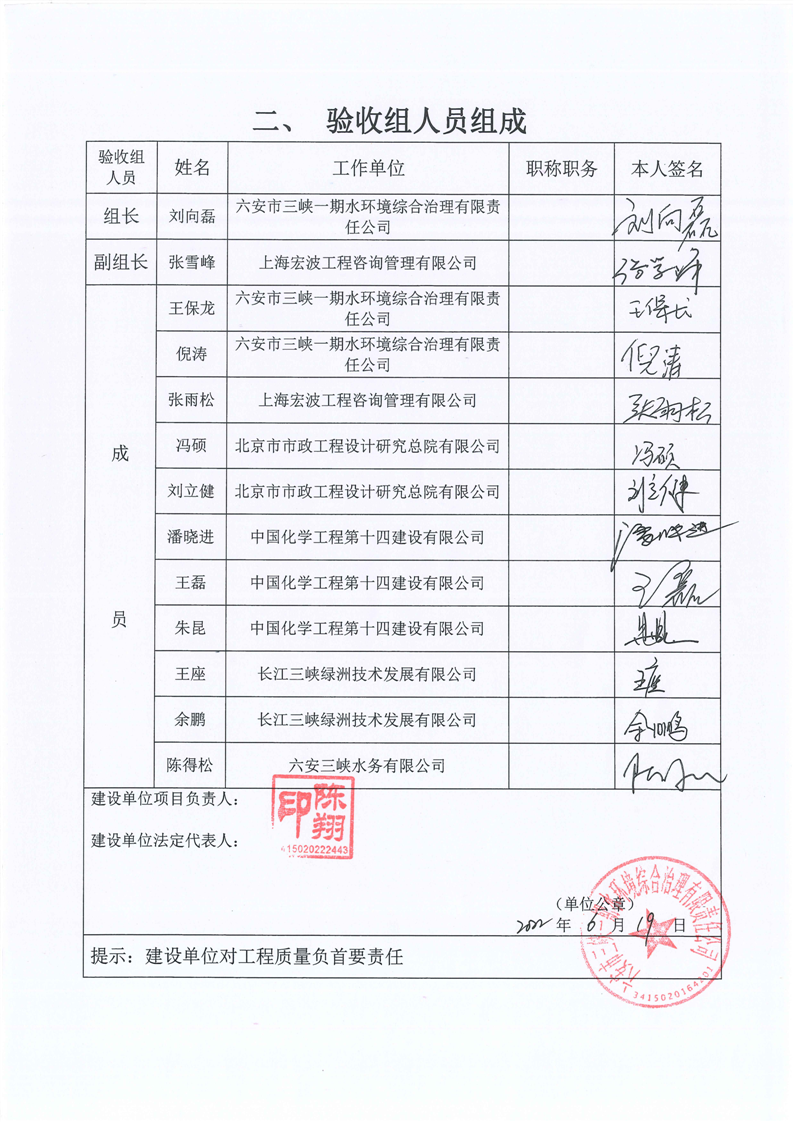 二、 验收组人员组成
验收组人员 姓名 工作单位 职称职务 本人签名
组长 刘向磊 六安市三峡一期水环境综合治理有限责任公司 刘向磊
副组长 张雪峰 上海宏波工程咨询管理有限公司 张学峰
成员
王保龙 六安市三峡一期水环境综合治理有限责任公司 王保龙
倪涛 六安市三峡一期水环境综合治理有限责任公司 倪涛
张雨松 上海宏波工程咨询管理有限公司 张雨松
冯硕 北京市市政工程设计研究总院有限公司 冯硕
刘立健 北京市市政工程设计研究总院有限公司 刘立健
潘晓进 中国化学工程第十四建设有限公司 潘晓进
王磊 中国化学工程第十四建设有限公司 王磊
朱昆 中国化学工程第十四建设有限公司
王座 长江三峡绿洲技术发展有限公司 王座
余鹏 长江三峡绿洲技术发展有限公司 余鹏
陈得松 六安三峡水务有限公司
建设单位项目负责人：
建设单位法定代表人：
陈翔印
415020222443
（单位公章）
2022 年 6 月 19 日
六安市三峡一期水环境综合治理有限责任公司
3415020164201
提示：建设单位对工程质量负首要责任